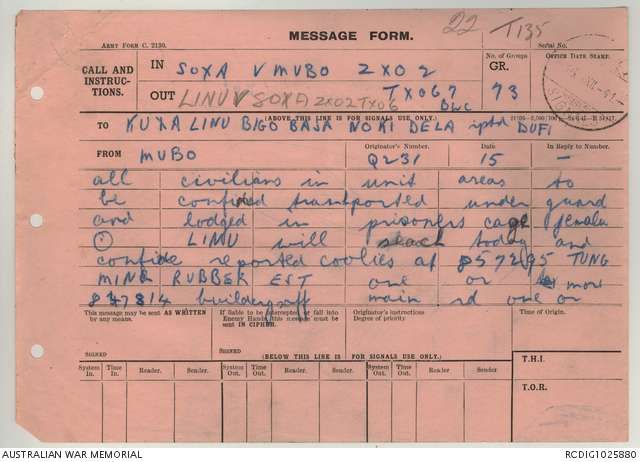 22 T135
MESSAGE FORM.
ARMY FORM C. 2130.
Serial No.
CALL AND INSTRUCTIONS.
IN SOXA V MVBO ZXO2
No. of Groups
GR. 73
OFFICE DATE STAMP.
OUT LINU V SOXA ZXO2 TX06 TX067
(ABOVE THIS LINE IS FOR SIGNALS USE ONLY.)
TO KUXA LINU BIGO BASA NOKI DELA iptd DUFI
FROM MVBO
Originator's Number. Q231
Date 15
In Reply to Number. —
all civilians in unit areas to
be confined transported under guard
and lodged in prisoners cage females
⊙ LINU will search today and
confide reported coolies at 857295 TUNG
MING RUBBER EST one or more
main rd one or
This message may be sent AS WRITTEN by any means.
If liable to be intercepted or fall into Enemy Hands, this message must be sent IN CIPHER.
Originator's instructions
Degree of priority.
Time of Origin.
SIGNED
SIGNED
(BELOW THIS LINE IS FOR SIGNALS USE ONLY.)
T.H.I.
System In. Time In. Reader. Sender. System Out. Time Out. Reader. Sender. System Out. Time Out. Reader. Sender.
T.O.R.
AUSTRALIAN WAR MEMORIAL
RCDIG1025880